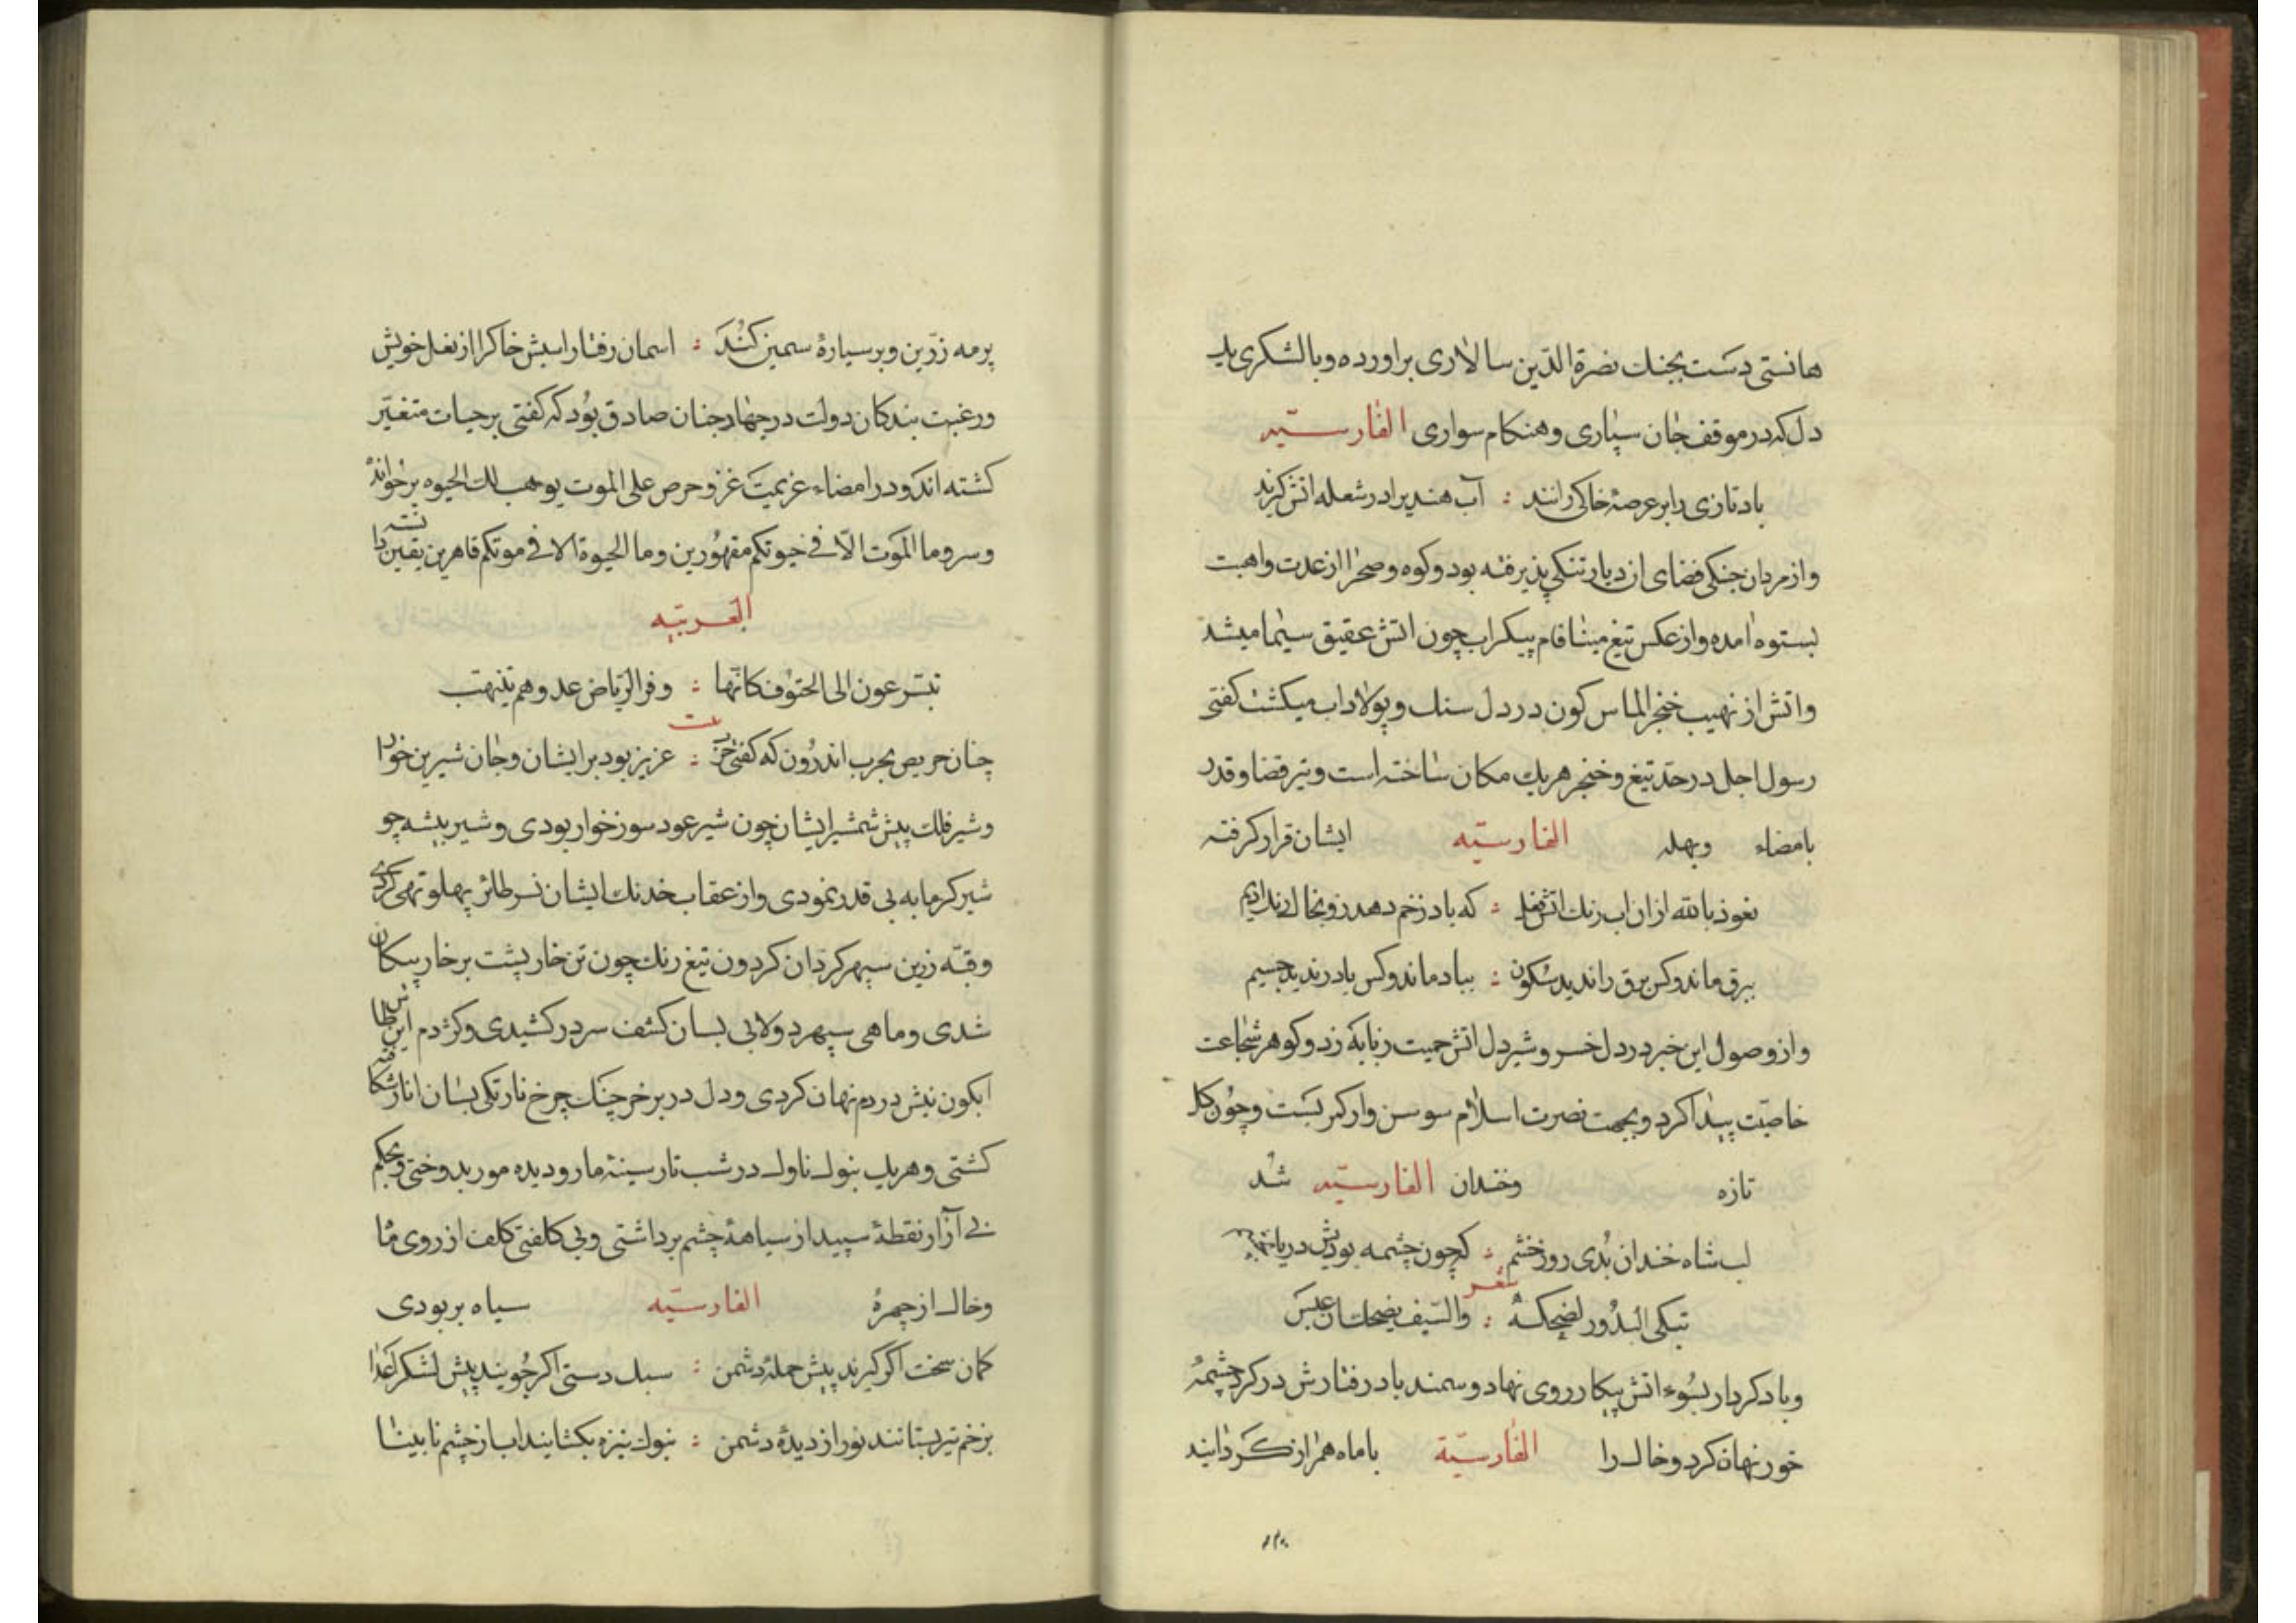 هانستی دست بجنك نصرة الدّین سالاری براورده و با لشکری یك
دل که در موقف جان سپاری و هنکام سواری الفارسیّه
باد تازی را بر عرصۀ خاکی رانند : آب هندیرا در شعله اتش کرند
و از مردان جنکی فضای ان دیار تنکی پذیرفته بود و کوه و صحرا از عدت و اهبت
بستوه امده و از عکس تیغ مینا فام پیکر اب چون اتش عقیق سیما میشد
و اتش از نهیب خنجر الماس کون در دل سنك و پولاد اب میکشت کفتی
رسول اجل در حدّ تیغ و خنجر هریك مکان ساخته است و تیر قضا و قدر
بامضاء الفارسیّه ایشان قرار کرفته
نعوذ بالله ازان اب رنك اتش فعل : که باد زخم دهد زو بخاك رنك ادیم
ببرق ماند و کس برق را ندید سکون : بباد ماند و کس باد را ندید جسیم
و از وصول این خبر در دل خسرو شیر دل اتش حمیت زبانه زد و کوهر شجاعت
خاصیّت پیدا کرد و بجهت نصرت اسلام سوسن وار کمر بست و چون کل
تازه وخندان الفارسیّه شد
لب شاه خندان بدی روز خشم : که چون چشمه بودیش دریا
شعر
تبکی البدور لضحکه : والسّیف یضحك ان عبس
و باد کردار بسوء اتش پیکار روی نهاد و سمند باد رفتارش در کرد چشمۀ
خور نهان کرد و خاك را الفارسیّة با ماه همراز کردانید
بر مه زرّین و بر سیارۀ سمین کند : اسمان رفتار اسبش خاك را از نعل خویش
و رغبت بندکان دولت در جهاد چنان صادق بود که کفتی بر حیات متغیّر
کشته اند و در امضاء عزیمت غزو حرص علی الموت یوهب لك الحیوه بر خوانده
و سر و ما الموت الّا فی حیوتکم مقهورین و ما الحیوة الا فی موتکم قاهرین یقین دانسته
العربیّه
یتسرعون الی الحتوف کانّها : وفر الریاض عد وهم ینهب
بیت
چنان حریص بحرب اندرون که کفتی حرب : عزیز بود بر ایشان و جان شیرین خوار
و شیر فلك پیش شمشیر ایشان چون شیر عود سوز خوار بودی و شیر بیشه چو
شیر کرمابه بی قدر نمودی و از عقاب خدنك ایشان نسر طائر پهلو تهی کردی
و قبّه زرین سپهر کردان کردون تیغ رنك چون تن خارپشت بر خار پیکان
شدی و ماهی سپهر دولابی بسان کشف سر در کشیدی و کژدم این طاس
ابکون نیش در دم نهان کردی و دل در بر خرچنك چرخ نارنکی بسان انار شکافته
کشتی و هریك بنوك ناوك در شب تار سینۀ مار و دیده مور بدوختی و بحکم
بی آزار نقطۀ سپید از سیاهۀ چشم برداشتی و بی کلفتی کلف از روی ماه
و خال از چهرۀ الفارسیّه سیاه بربودی
کمان سخت اکر کیرند پیش حملۀ دشمن : سبك دستی اکر جویند پیش لشکر اعدا
بزخم تیر بستانند نور از دیدۀ دشمن : بنوك نیزه بکشایند اب از چشم نابینا